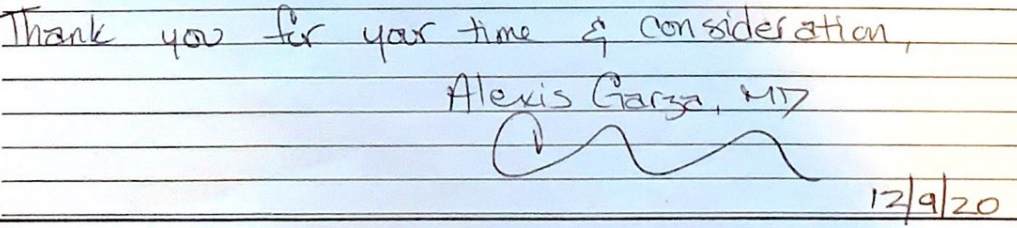 Thank you for your time & consideration,
Alexis Garza, MD
12/9/20